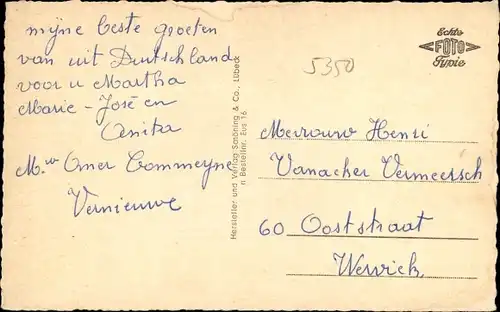 mijne beste groeten
van uit Duitschland
voor u Martha
Marie-José en
Anita
Mr Omer Commeyne
à
Vernieuwe
Hersteller und Verlag Schöning & Co., Lübeck
Bestellnr. Eus 16
Echte
FOTO
Typie
5350
Mevrouw Henri
Vanacher Vermeersch
60 Ooststraat
Wervick